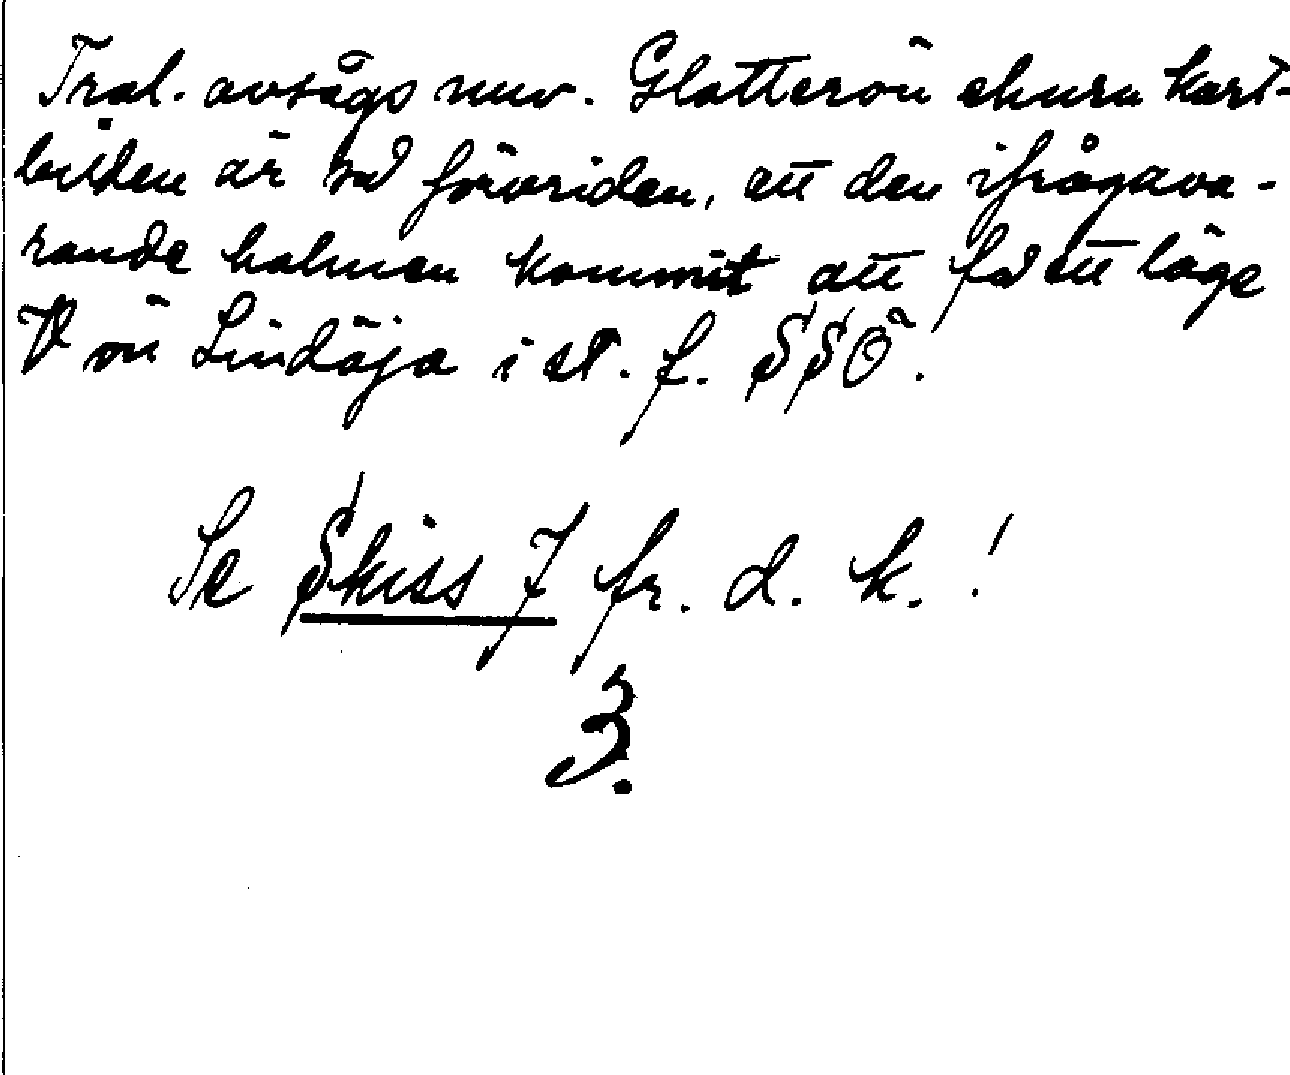 Trol. avsågs nuv. Glatterön ehuru kart-
bilden är så förvriden, att den ifrågava-
rande holmen kommit att få ett läge
V om Lindöja i st. f. SSÖ.
Se Skiss 7 fr. d. k.!
3.